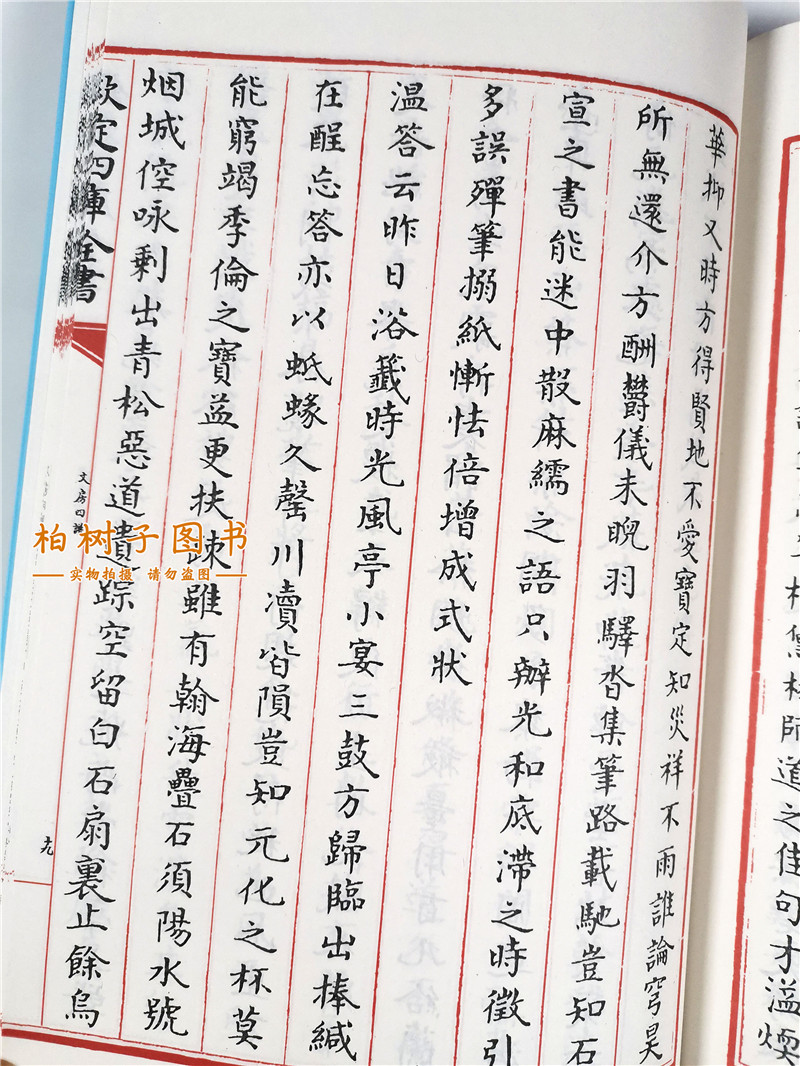 道之佳句才溢煥
華抑又時方得賢地不愛寶定知災祥不雨誰論穹昊
所無還介方酬欝儀未睨羽驛沓集筆路載馳豈知石
宣之書能迷中散麻繻之語只辦光和底滯之時徵引
多誤殫筆搦紙慚怯倍增成式狀
溫答云昨日浴籤時光風亭小宴三鼓方歸臨出捧緘
在酲忘答亦以蚳蝝久罄川瀆皆隕豈知元化之杯莫
能窮竭季倫之寶益更扶疎雖有翰海疊石須陽水號
烟城倥咏剩出青松惡道遺踪空留白石扇裏止餘烏
欽定四庫全書
文房四譜
十九
柏树子图书
实物拍摄 请勿盗图